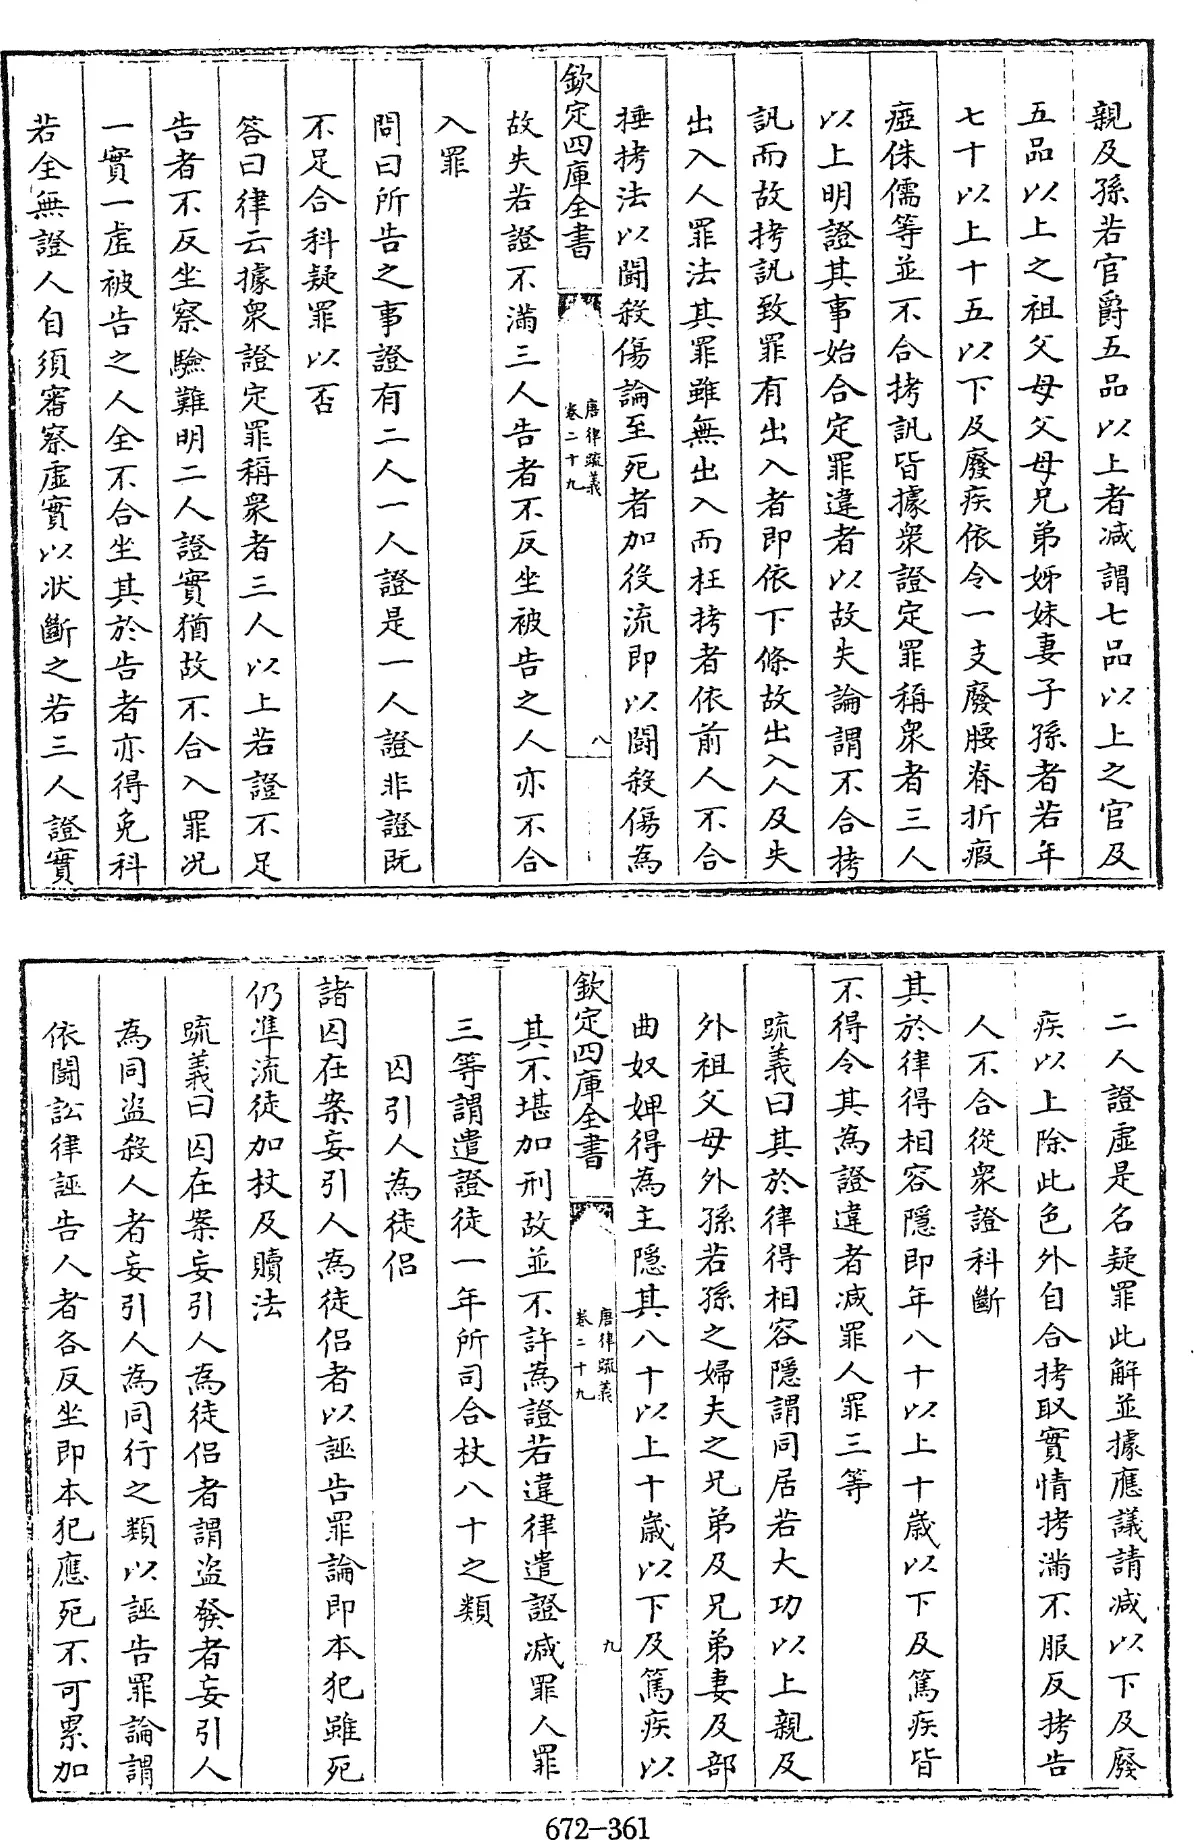 親及孫若官爵五品以上者減謂七品以上之官及
五品以上之祖父母父母兄弟姊妹妻子孫者若年
七十以上十五以下及廢疾依令一支廢腰脊折瘕
瘂侏儒等並不合拷訊皆據衆證定罪稱衆者三人
以上明證其事始合定罪違者以故失論謂不合拷
訊而故拷訊致罪有出入者即依下條故出入人及失
出入人罪法其罪雖無出入而枉拷者依前人不合
捶拷法以鬪殺傷論至死者加役流即以鬪殺傷為
欽定四庫全書
唐律疏義
卷二十九
八
故失若證不滿三人告者不反坐被告之人亦不合
入罪
問曰所告之事證有二人一人證是一人證非證既
不足合科疑罪以否
答曰律云據衆證定罪稱衆者三人以上若證不足
告者不反坐察驗難明二人證實猶故不合入罪况
一實一虛被告之人全不合坐其於告者亦得免科
若全無證人自須審察虛實以狀斷之若三人證實
二人證虛是名疑罪此解並據應議請減以下及廢
疾以上除此色外自合拷取實情拷滿不服反拷告
人不合從衆證科斷
其於律得相容隱即年八十以上十歲以下及篤疾皆
不得令其為證違者減罪人罪三等
疏義曰其於律得相容隱謂同居若大功以上親及
外祖父母外孫若孫之婦夫之兄弟及兄弟妻及部
曲奴婢得為主隱其八十以上十歲以下及篤疾以
欽定四庫全書
唐律疏義
卷二十九
九
其不堪加刑故並不許為證若違律遣證減罪人罪
三等謂遣證徒一年所司合杖八十之類
囚引人為徒侶
諸囚在案妄引人為徒侶者以誣告罪論即本犯雖死
仍準流徒加杖及贖法
疏義曰囚在案妄引人為徒侶者謂盜發者妄引人
為同盜殺人者妄引人為同行之類以誣告罪論謂
依鬪訟律誣告人者各反坐即本犯應死不可累加
672-361